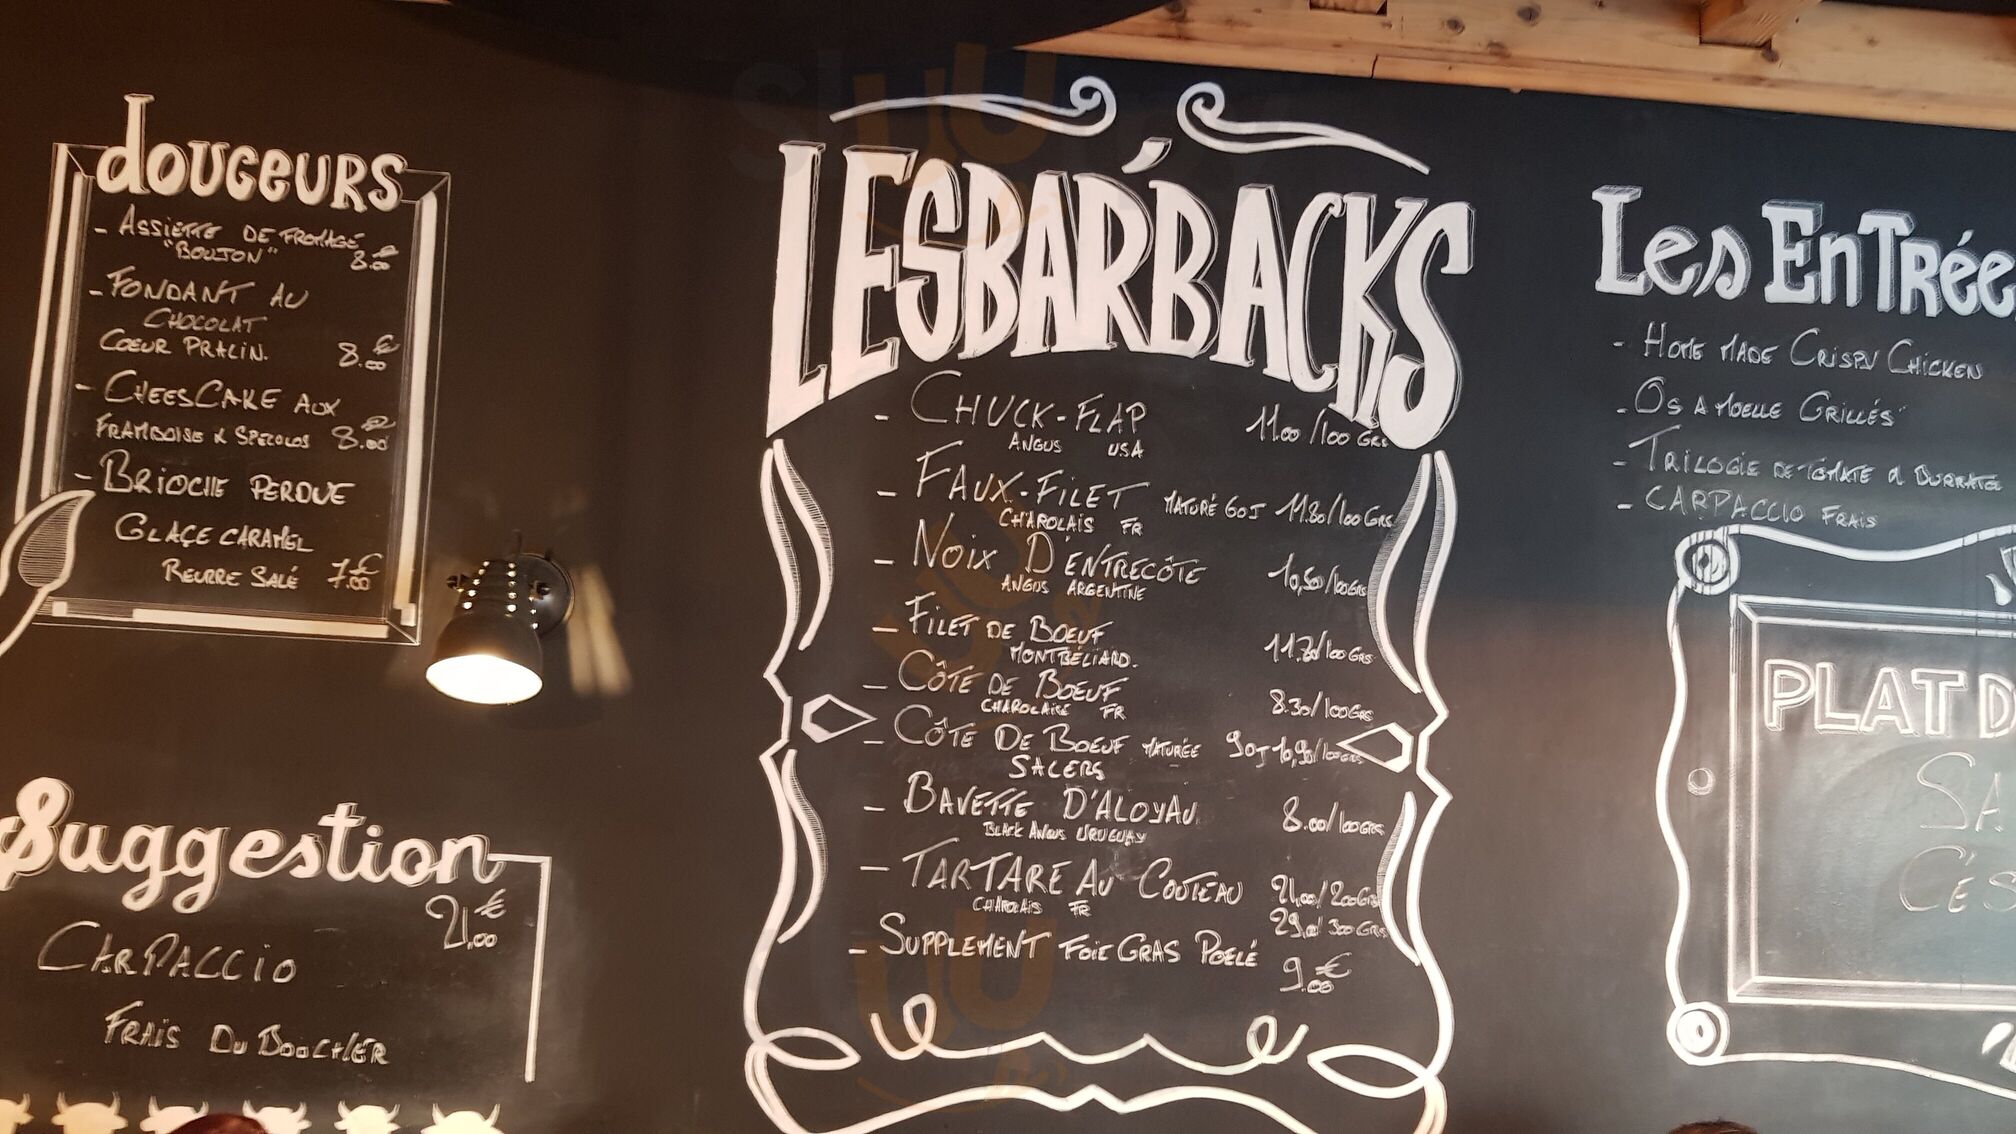 douceurs
- ASSIETTE DE FROMAGE
"BOUJON" 8.00
- FONDANT AU
CHOCOLAT
COEUR PRALIN. 8.00€
- CHEESCAKE AUX
FRAMBOISE & SPECOLOS 8.00
- BRIOCHE PERDUE
GLAÇE CARAMEL
BEURRE SALÉ 7.00€
Suggestion
21,00€
CARPACCIO
FRAIS DU BOUCHER
LESBAR'BACKS
- CHUCK-FLAP 11.00/100 GRS
ANGUS USA
- FAUX-FILET MATURÉ 60J 11.80/100GRS
CHAROLAIS FR
- NOIX D'ENTRECÔTE 10,50/100GRS
ANGUS ARGENTINE
- FILET DE BOEUF
MONTBÉLIARD. /100GRS
- CÔTE DE BOEUF 8.30/100GRS
CHAROLAISE FR
- CÔTE DE BOEUF MATURÉE 90J 10,90/100GRS
SALERS
- BAVETTE D'ALOYAU 8.00/100GRS
BLACK ANGUS URUGUAY
- TARTARE AU COUTEAU 21,00/200GRS
CHAROLAIS FR 29.00/300GRS
- SUPPLEMENT FOIE GRAS POELÉ
9.00€
Les EnTrée
- HOME MADE CRISPY CHICKEN
- OS A MOELLE GRILLÉS
- TRILOGIE DE TOMATE & BURRATA
- CARPACCIO FRAIS
PLAT D
SA
C'ES